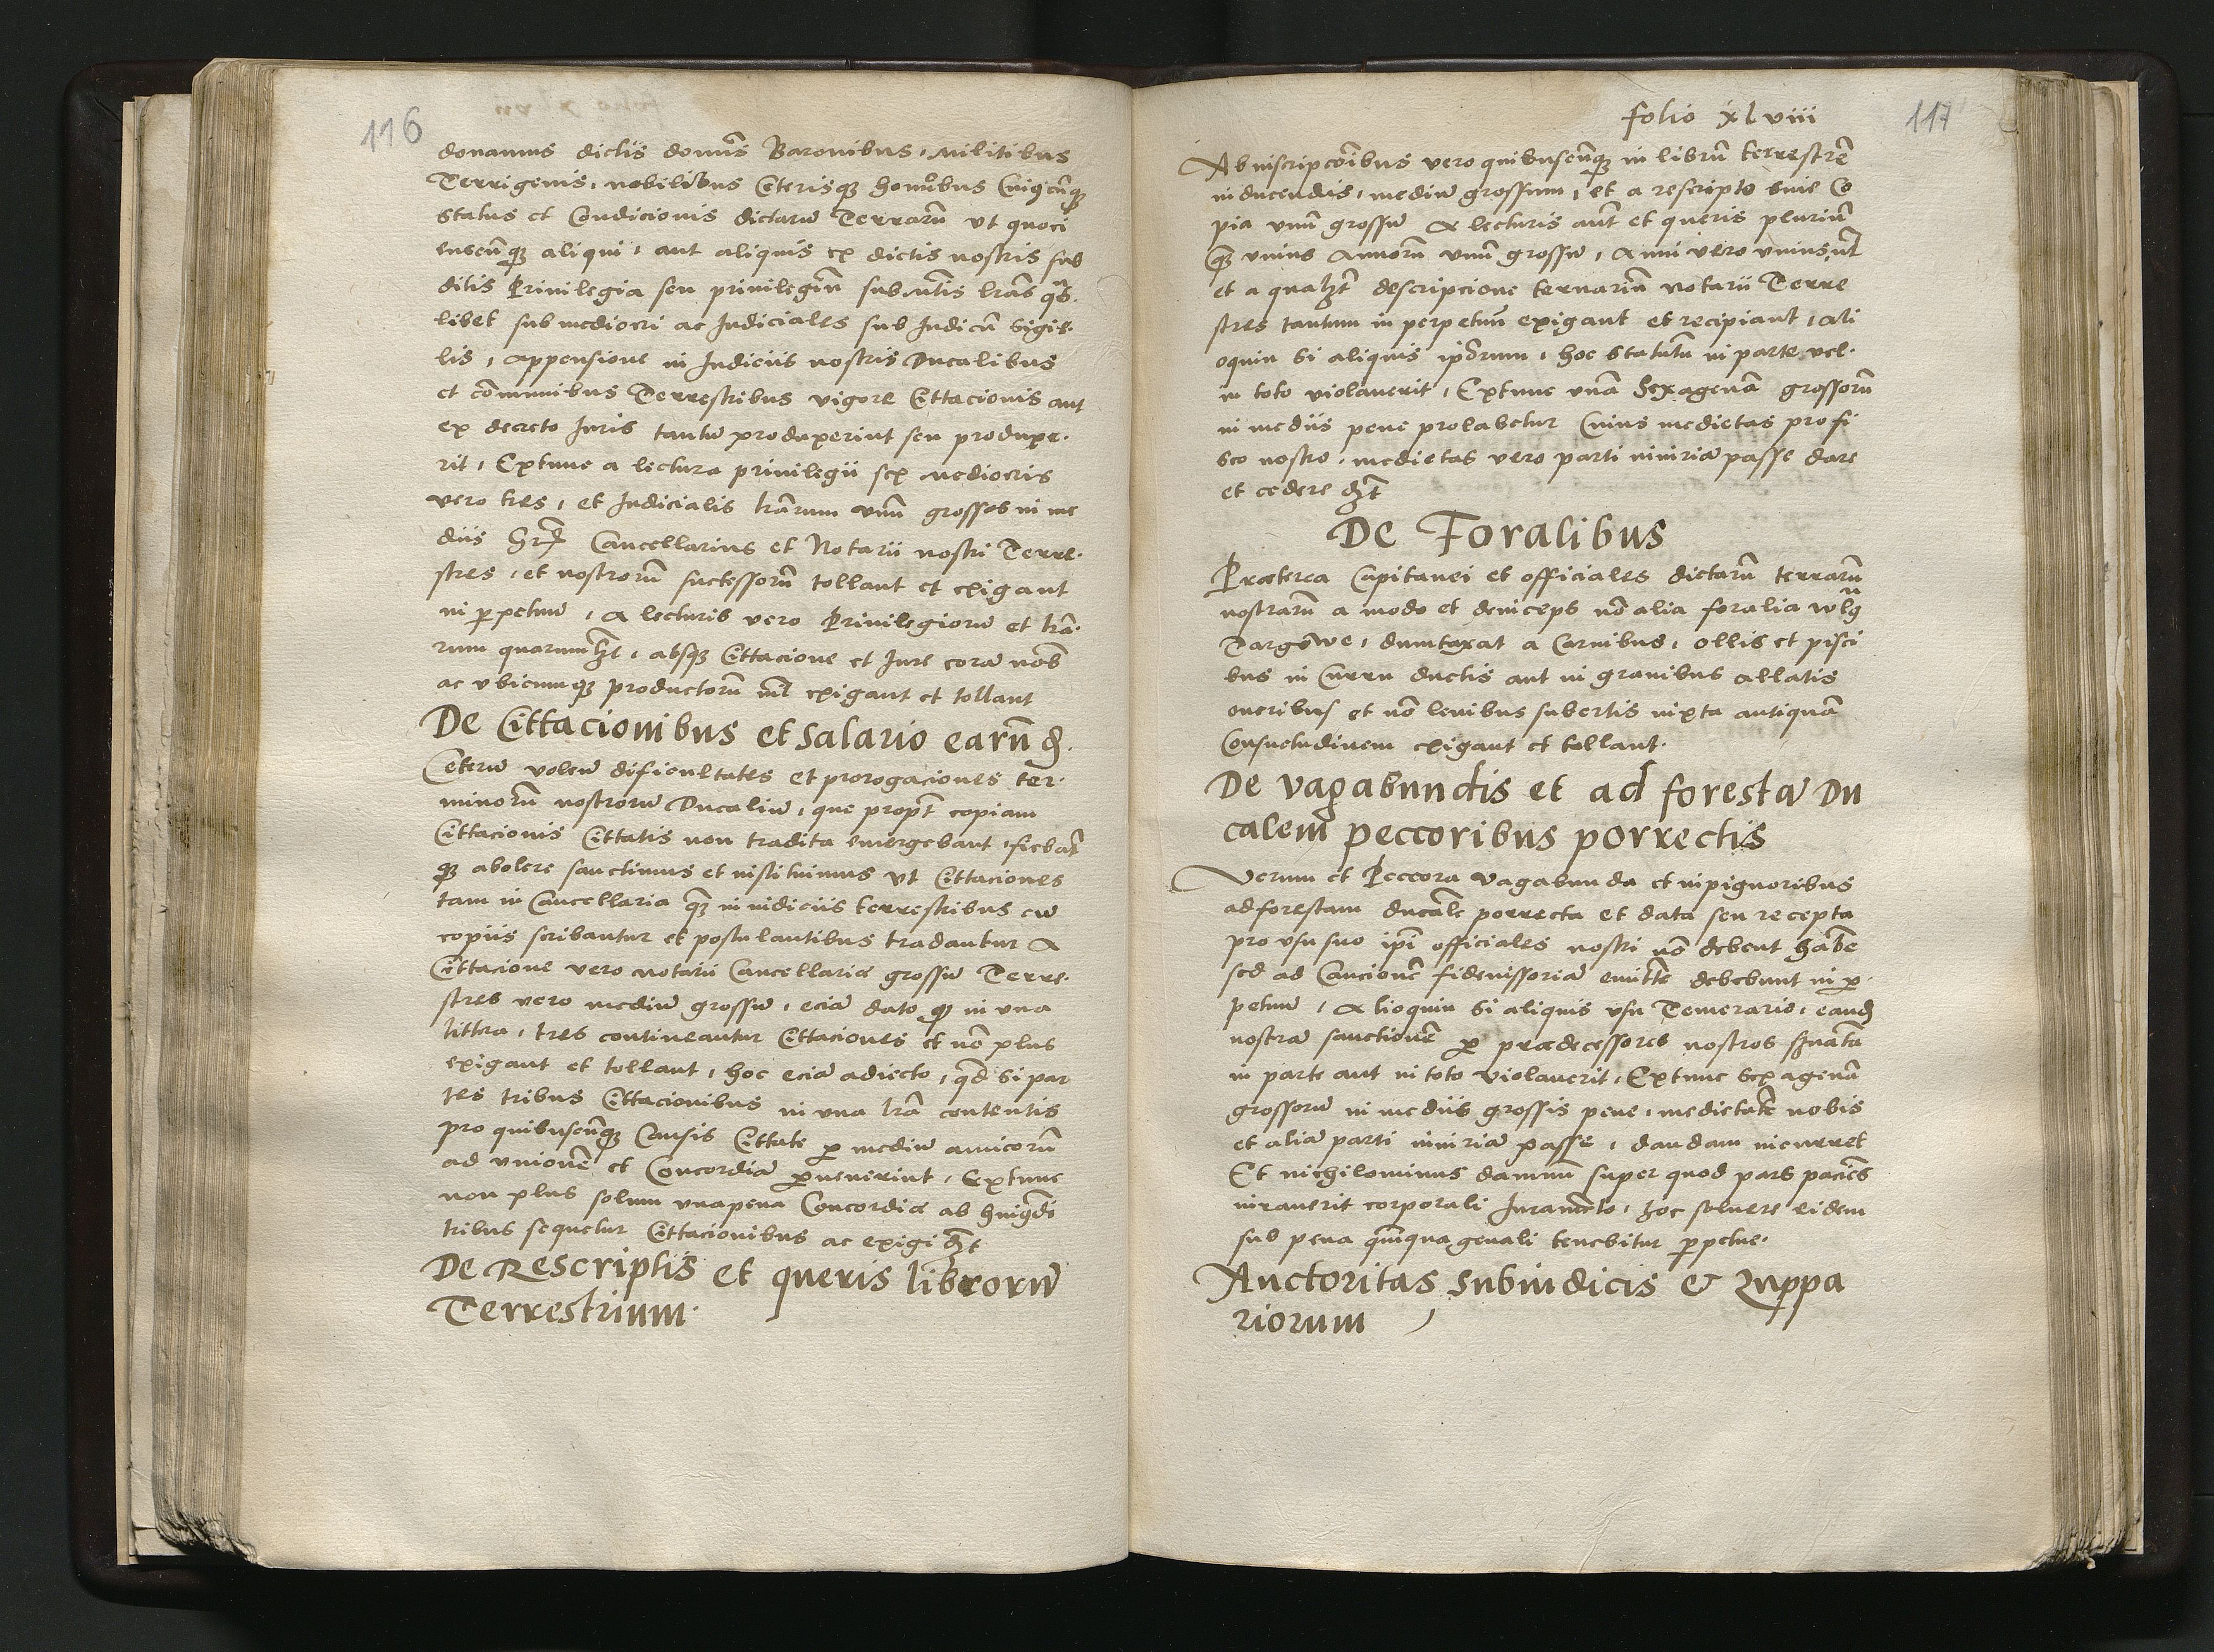 116
donamus dictis domīs Baronibus, militibus
Terrigenis, nobilibus Ceterisqȝ hom̄ibus Cuiꝯcūqȝ
Status et Condicionis dictarū Terrarū ut quoci
enscūqȝ aliqui, aut aliquis ex dictis nostris sub
ditis Privilegia seu privilegiū sub n̄tis lr̄as
libet sub mediocri ac Judiciales sub Judicū sigil-
lis, appensione in Judiciis nostris Ducalibus
et cōmunibus Terrestribus vigore Cittacionis aut
ex decreto Juris tantū produxerint seu produxe-
rit, Extunc a lectura privilegii sex mediocris
vero tres, et Judicialis lr̄arum unū grossos in me
diis Cancellarius et Notarii nostri Terre-
stres, et nostrorū suctessorū tollant et exigant
in ꝑpetuū, A lecturis vero Privilegiorū et lr̄a-
rum quarumlȝt, absqȝ Cittacione et Jure corā nob̄
ac ubicumqȝ productorū nil exigant et tollant
De Cittacionibus et salario earūd.
Ceterū volen̄ dificultates et prorogaciones ter-
minorū nostrorū Ducaliū, que propt̄ copiam
Cittacionis Cittatis non tradita emergebant, fiebāt
qȝ abolere sanctimus et instituimus ut Cittaciones
tam in Cancellaria qȝ in iudiciis terrestribus cū
copiis scribantur et postulantibus tradantur A
Cittacione vero notarii Cancellariæ grossū Terre-
stres vero mediū grossū, eciā dato qȝ in una
littera, tres contineantur Cittaciones et nō plus
exigant et tollant, hoc eciā adiecto, qd̄ si par
tes tribus Cittacionibus in una lr̄a contentis
pro quibuscūqȝ Causis Cittate ꝑ mediū amicorū
ad unionē et Concordiā ꝑuenerint, Extunc
non plus solum una pena Concordiæ ab huiꝯdi
tribus sequetur Cittacionibus ac exigi dȝt
De Rescriptis et queris librorū
Terrestrium.
folio xlviii
117
Ab inscripcōibus vero quibuscūqȝ in librū terrestrē
inducendis, mediū grossum, et a rescripto sive Co
pia unū grossū A lecturis aūt et queris pluriū
qȝ unius Annorū unū grossū, Anni vero unius
et a qualȝt descripcione ternariū notarii Terre
stres tantum in perpetuū exigant et recipiant, ali
oquin si aliquis ip̄orum, hoc statutū in parte vel
in toto violaverit, Extunc unā Sexagenā grossorū
in mediis pene prolabetur Cuius medietas profi
sco nostro, medietas vero parti iniuriā passe dare
et cedere dȝt
De Foralibus
Præterea Capitanei et officiales dictarū terrarū
nostrarū a modo et deinceps nō alia foralia vulg
Targowe, dumtaxat a Carnibus, ollis et pisci
bus in Curru ductis aut in gravibus allatis
oneribus et nō levibus subertis iuxta antiquā
Consuetudinem exigant et tollant.
De vagabundis et ad forestā Du
calem peccoribus porrectis
Verum et Peccora vagabunda et inpignoribus
ad forestam ducālē porrecta et data seu recepta
pro usu suo ip̄i officiales nostri nō debent hab̄e
sed ad Caucionē fideiussoriā emitt̄e debebunt in ꝑ-
petuū, Alioquin si aliquis usu Temerario, eand
nostrā sanctionē ꝑ prædecessores nostros s̄rvata
in parte aut in toto violaverit, Extunc sexagenā
grossorū in mediis grossis pene, medietatē nobis
et aliā parti iniuriā passe, dandam incurret
Et nichilominus damnū super quod pars paciēs
iuraverit corporali Juramēto, hoc solvere eidem
sub pena quīquagenali tenebitur ꝑpetue.
Auctoritas subiudicis & Zuppa
riorum